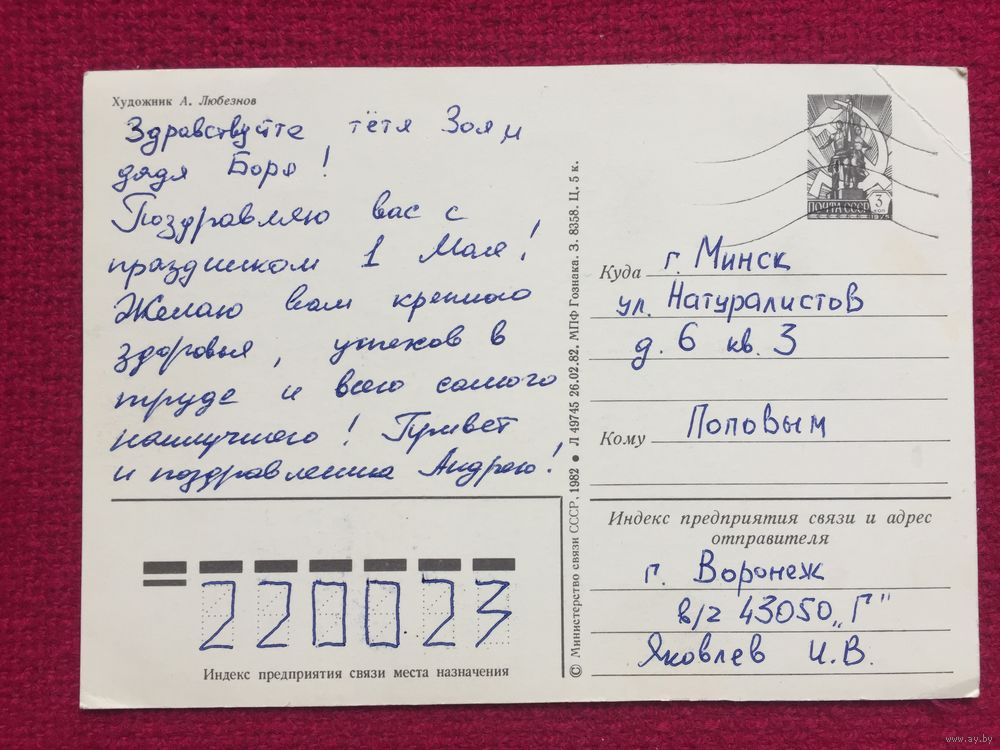 Художник А. Любезнов
Здравствуйте тётя Зоя и
дядя Боря!
Поздравляю вас с
праздником 1 Мая!
Желаю вам крепкого
здоровья, успехов в
труде и всего самого
наилучшего! Привет
и поздравления Андрею!
220023
Индекс предприятия связи места назначения
© Министерство связи СССР. 1982 ● Л 49745 26.02.82. МПФ Гознака. З. 8358. Ц. 5 к.
ПОЧТА СССР 3 КОП
1976
Куда г. Минск
ул. Натуралистов
д. 6 кв. 3
Кому Поповым
Индекс предприятия связи и адрес
отправителя
г. Воронеж
в/ч 43050 „Г"
Яковлев И.В.
www.ay.by